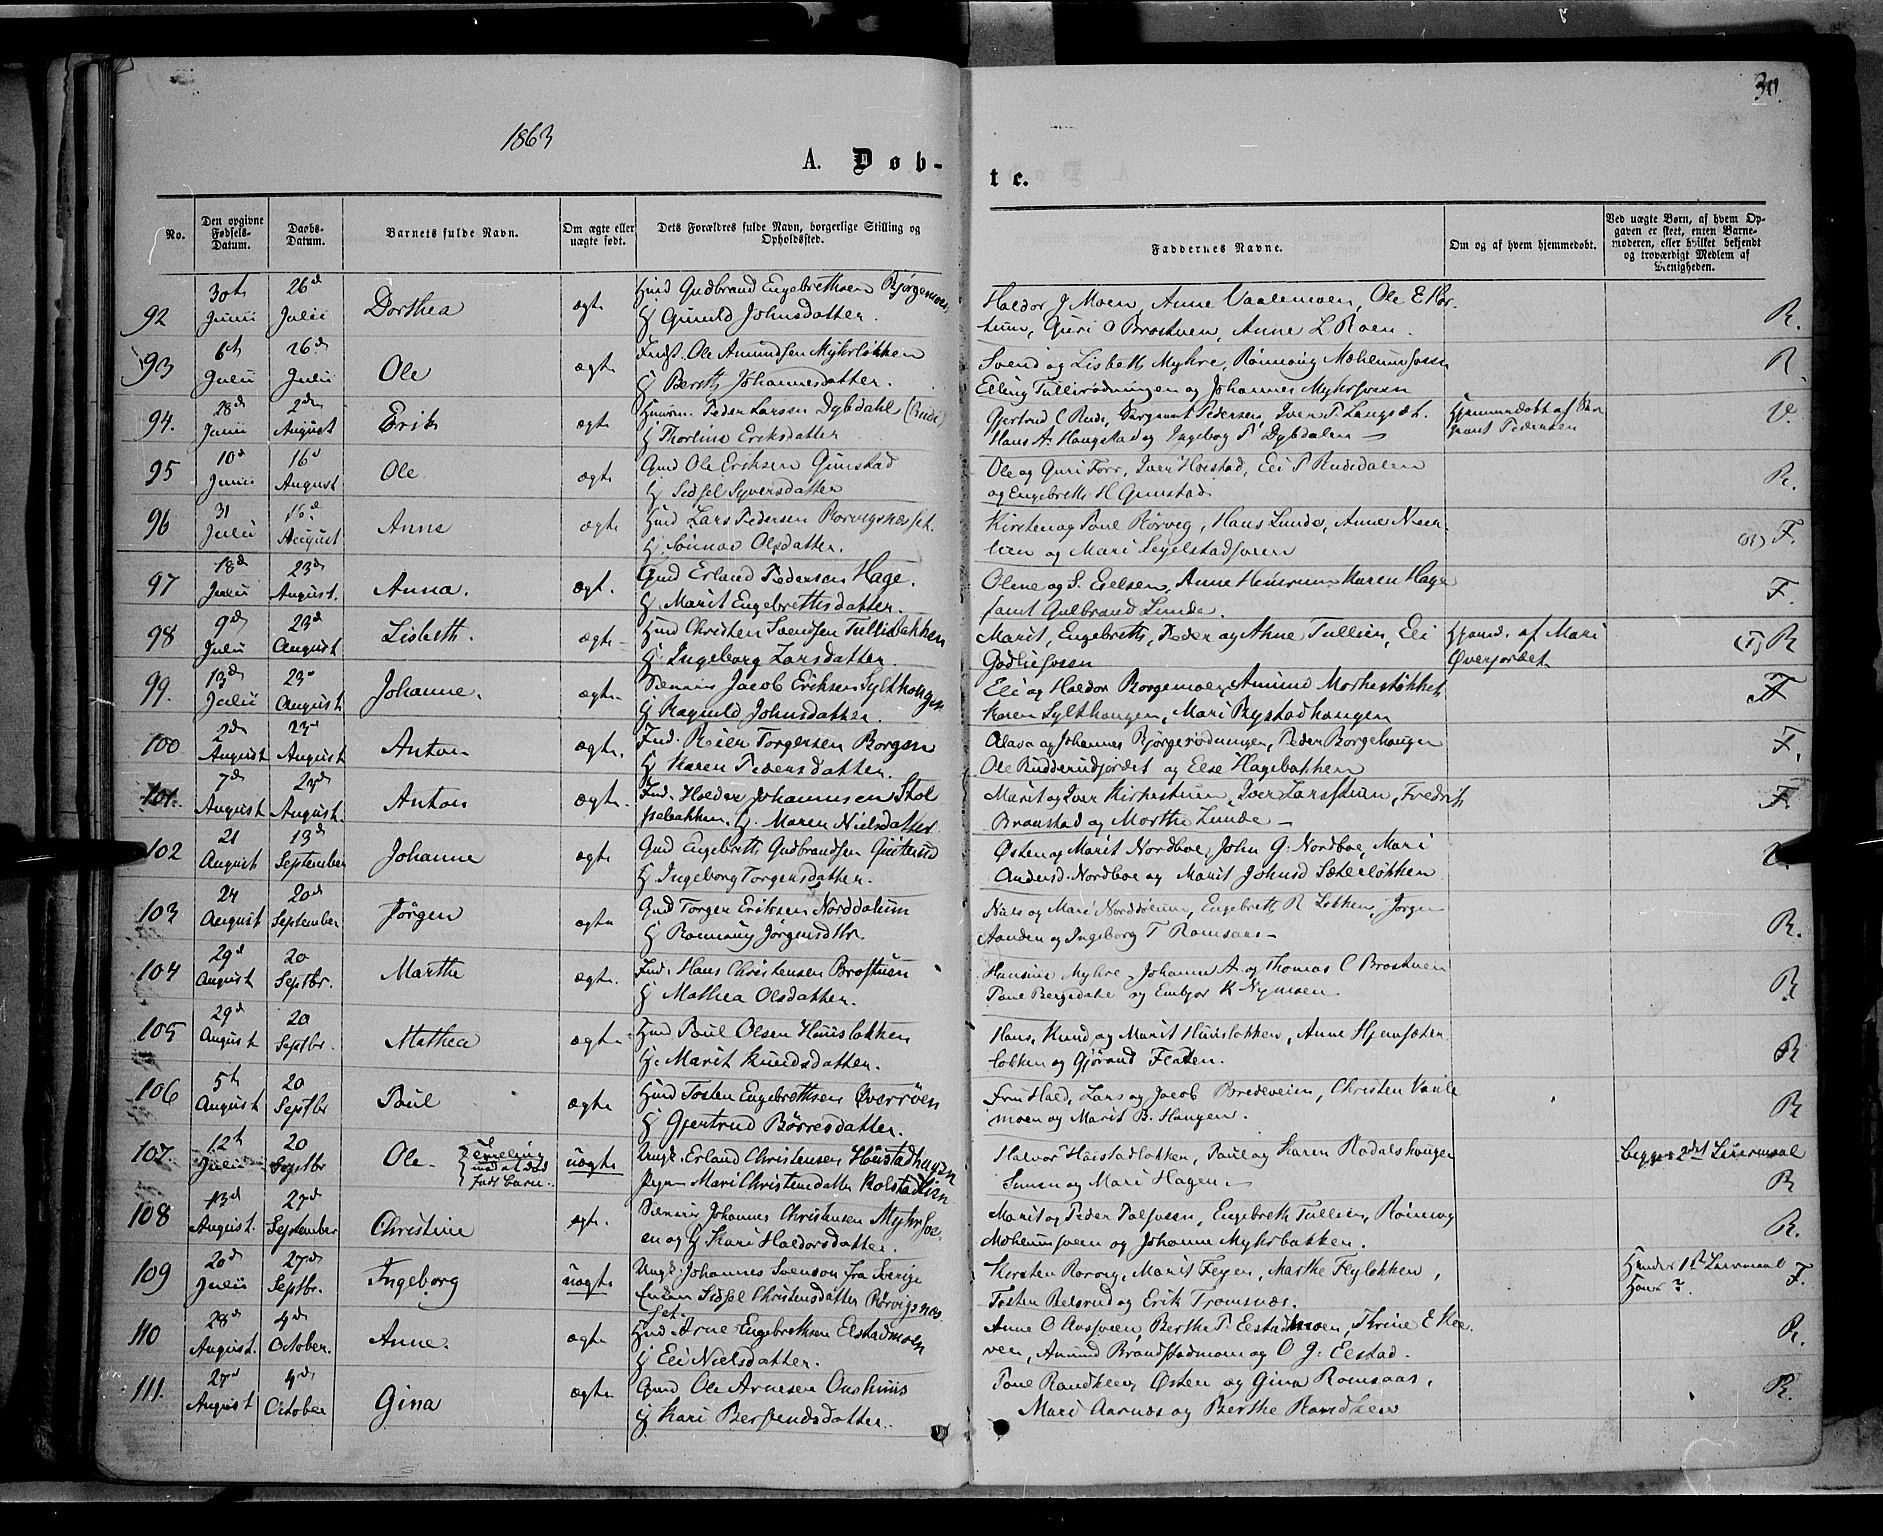 30.
1863
A. Døb-
te.
No.
Den opgivne Fødsels-Datum.
Daabs-Datum.
Barnets fulde Navn.
Om ægte eller uægte født.
Dets Forældres fulde Navn, borgerlige Stilling og Opholdssted.
Faddernes Navne.
Om og af hvem hjemmedøbt.
Ved uægte Børn, af hvem Opgaven er skeet, enten Barnemoderen, eller hvilket bekjendt og troværdigt Medlem af Menigheden.
92 30te Junii 26d Julii Dorthea ægte Huusmd Gudbrand Engebrethsen Bjørgemoen
H Gunild Johnsdatter.
Haldor J Moen, Anne Vaalemoen, Ole E Kor-
tum, Guri O Brostuen, Anne L Roen. R.
93 6th Julii 26d Julii Ole ægte Inds. Ole Amundsen Myhrløkken
H Bereth Johannesdatter.
Svend og Lisbeth Myhre, Rønnoug Mæhlumsveen
Elling Tullirødningen og Johannes Myhrsveen R
94. 28d Junii 2den August Erik ægte Peder Larsen Dybdahl (Rude)
H Thorline Eriksdatter
Gjertrud C Rude, Sargeant Pedersen, Iver P Langsæt.
Hans A. Haugstad og Ingebog P. Dybdalen
Hjemmedøbt af Sar-
geant Pedersen V.
95 10d Junii 16d August Ole ægte Gmd Ole Eriksen Gunstad
H Sidsel Syversdatter
Ole og Guri Forr, Iver Hoistad, Eli P Rudsdalen
og Engebreth H Gunstad R.
96 31 Julii 16d August Anne ægte Hmd Lars Pedersen Rorvigsnæsset.
H Sønnov Olsdatter.
Kirsten og Pone Rørvig, Hans Lunde, Anne
og Mari Segelstadsveen F.
97 18d Julii 23d August. Anna. ægt. Gmd Erland Pedersen Hage.
H Marit Engebrethsdatter.
Oline og S. Eielsen, Anne Heimrum Karen Hage
samt Gulbrand Lunde. F.
98 9d Julii 23d August Lisbeth. ægte Hmd Christen Svendsen Tullibakken
H Ingeborg Larsdatter.
Marit, Engebreth, Peder og Anne Tullien, Eli
Godliesveen
Hjemd. af Mari
Øverjordet. (F) R
99. 13d Julii 23d August. Johanne. ægte. Jacob Eriksen Sylthaugen
H Ragnild Johnsdatter.
Eli og Haldor Borgemoen, Amund Morkestøkket
Karen Sylthaugen, Mari Bystadhaugen F
100 2d August 23d August Anton ægte. Ind. Reier Torgersen Borgen
H Karen Pedersdatter.
Olava og Johannes Bjørgerødningen, Peder Borgehaugen
Ole Rudderudjordet og Else Hagebakken F.
101. 7d August 23d August. Anton ægte. Ind. Haldor Johannesen Stol-
psebakken. H. Maren Nielsdatter.
Marit og Iver Kirkestuen, Iver Larsstuen, Fredrik
Brænstad og Marthe Lunde F.
102 21 August 13d September Johanne ægte Gmd Engebreth Gudbrandsen Gusterud
H Ingeborg Torgersdatter.
Østen og Marit Nordboe, John G. Nordboe, Mari
Andersd. Nordboe og Marit Johnsd Sæterløkken V.
103 24 August 20d September Jørgen ægte Gmd Torger Eriksen Norddølum
H Rønnoug Jørgensdtr.
Niels og Mari Norddølum, Engebreth R Løkken, Jørgen
Aanden og Ingeborg T Romsaas R.
104 29d August 20 Septbr. Marthe ægte. Ind. Hans Christensen Brostuen
H Mathea Olsdatter.
Hansine Myhre, Johanne A og Thomas C Brostuen
Pone Bergedahl og Embjør K Nymoen R
105 29d August 20 Septbr. Mathea ægte Hmd Poul Olsen Huusløkken
H. Marit Knudsdatter.
Hans, Knud og Marit Huusløkken, Anne Hjemsæter-
løkken og Gjørand Fladen. R
106 5th August 20 Septbr Poul ægte Hmd Tosten Engebrethsen Øverrøen
H Gjertrud Børresdatter.
Fru Hald, Lars og Jacob Bredeveien, Christen Vaale-
moen og Marit B. Haugen. R
107 12th Julii 20 Septbr Ole. {Tvilling med et død født barn. uægte Ungk. Erland Christensen Hüistadhagen
Pigen Mari Christensdatter Kolstadlien
Halvor Hüistadløkken, Poul og Karen Rodalshaugen
Simen og Mari Hagen.
Begges 2det Leiermaal
R
108 13d August. 27d September Christine ægte. Johannes Christensen Myhrsve-
en og H Kari Haldorsdatter.
Marit og Peder Dalsveen, Engebreth Tullien, Rønnog
Mæhlumsveen og Johanne Myhrbakken. R.
109 20d Julii 27d Septbr. Ingeborg uægte Ungk. Johannes Svenson fra Sverige
Enken Sidsel Christensdatter Rørvigsnæs-
set.
Kersten Rorvig, Marit Flyen, Marthe Flyløkken,
Tosten Belsrud og Erik Tromsnæs.
Hendes 1ste Leiermaal
Hans? F.
110 28d August. 4d October. Anne. ægte Hmd Arne Engebrethsen Elstadmoen
H Eli Nielsdatter.
Anne O Aasveen, Berthe P. Elstadmoen, Thrine E Klee-
ven, Amund Brandstadmoen og O G. Elstad. R.
111. 27d August 4d October Gina ægte Gmd Ole Arnesen Onshuus
H Kari Bersvendsdatter.
Pone Randklev, Østen og Gina Romsaas,
Mari Aarnæs og Berthe Randklev R.